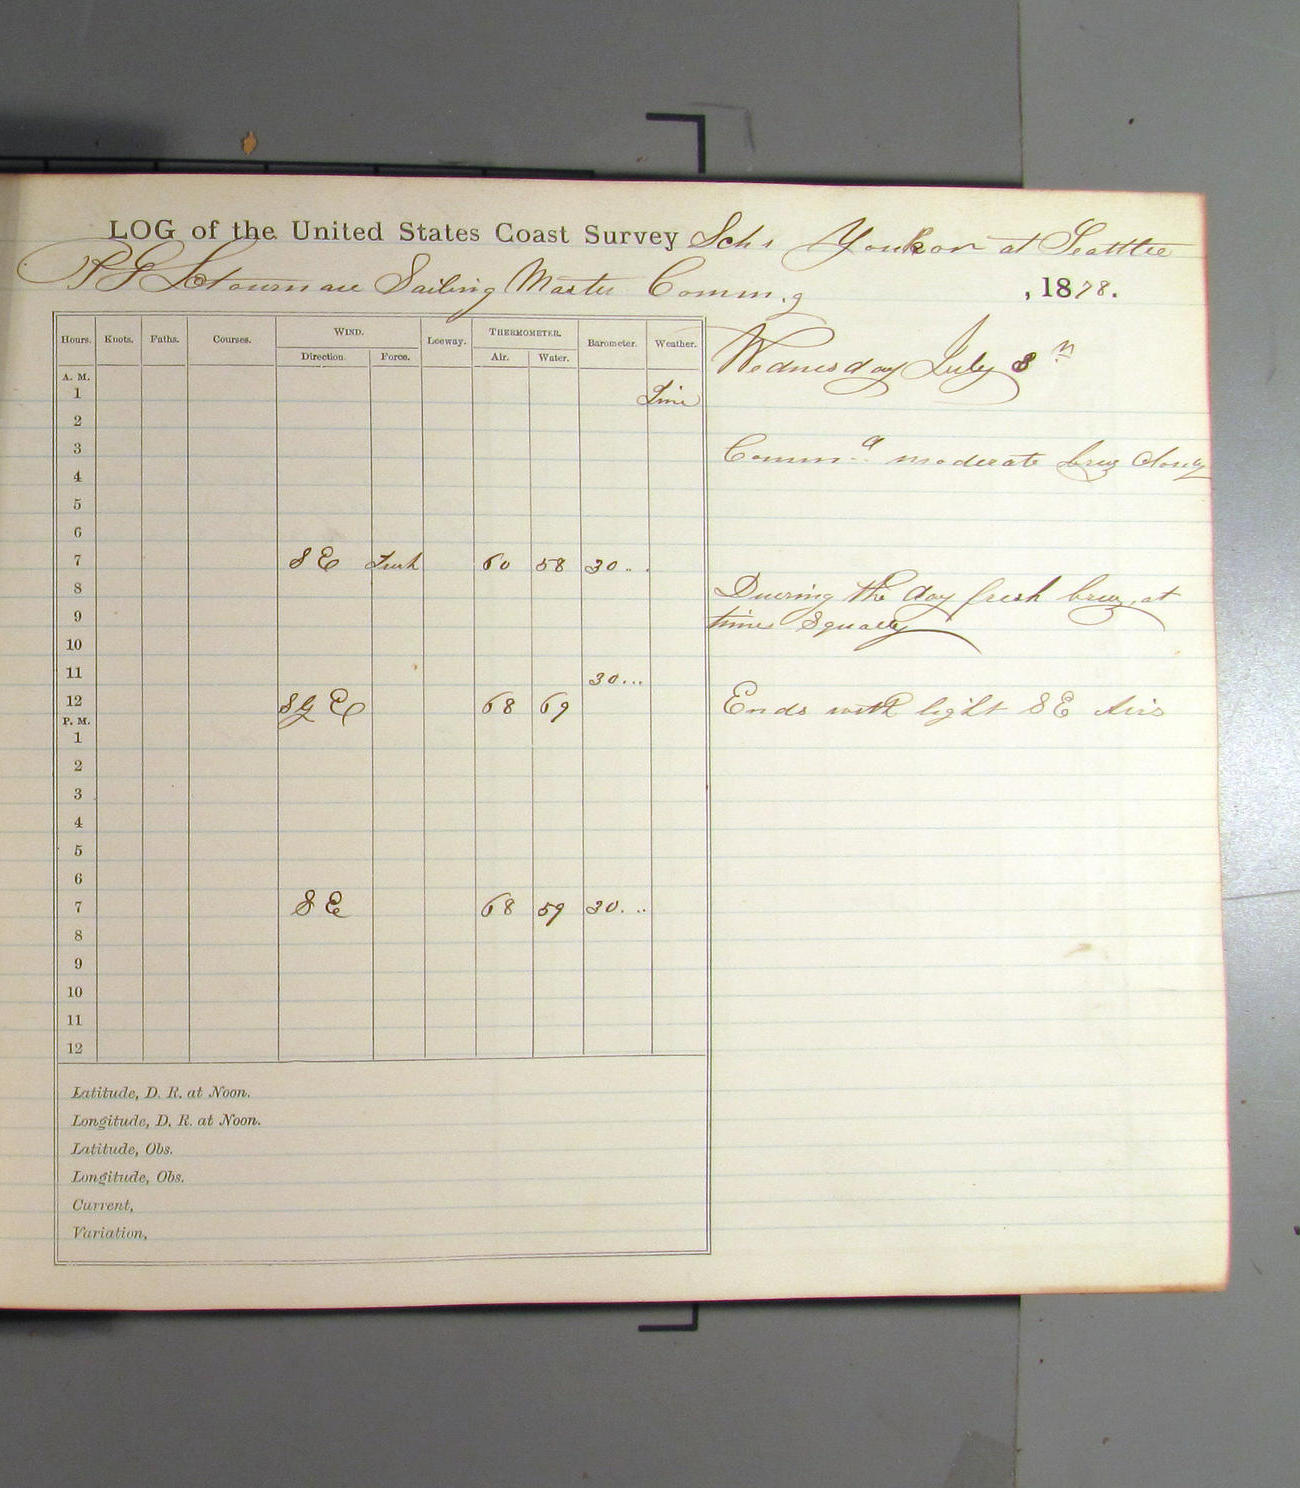 LOG of the United States Coast Survey Schr Youkon at Seattle
Sailing Master Comm.g , 1878.
Hours. Knots. Faths. Courses. WIND. Leeway. THERMOMETER. Barometer. Weather.
Direction. Force. Air. Water.
Wednesday July 8
A. M.
1
2
3 Comm.g moderate breez
4
5
6
7 S E Fresh 60 58 30 ..
8 Duering the day fresh breez, at
9 times Squally
10
11 30 ...
12 S E 68 69 Ends with light S E Airs
P. M.
1
2
3
4
5
6
7 S E 68 59 30. ..
8
9
10
11
12
Latitude, D. R. at Noon.
Longitude, D. R. at Noon.
Latitude, Obs.
Longitude, Obs.
Current,
Variation,